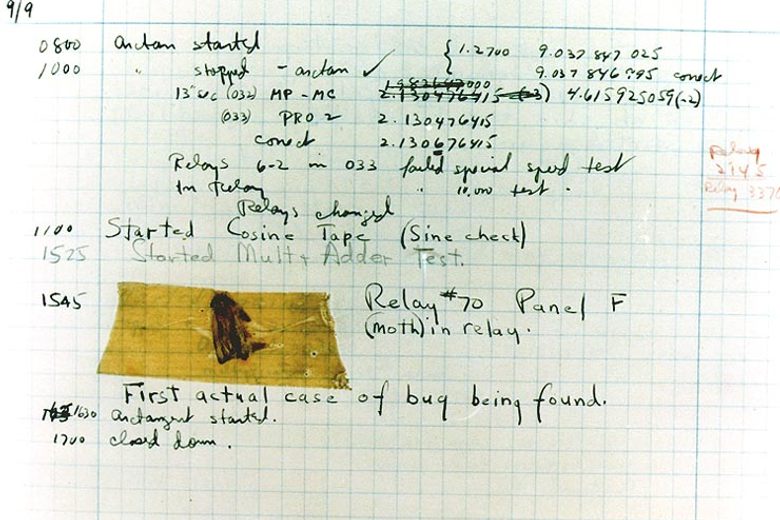 9/9
0800 arctan started { 1.2700 9.037 847 025
1000 " stopped - arctan ✓ { 9.037 846 995 conect
13" sec (032) MP - MC 2.130476415 (-3) 4.615925059(-2)
(033) PRO 2 2.130476415
conect 2.130676415
Relays 6-2 in 033 failed special speed test
In Relay " 10.000 test .
Relay
2145
Relay 3370
Relays changed
1100 Started Cosine Tape (Sine check)
1525 Started Mult + Adder Test.
1545 Relay #70 Panel F
(Moth) in relay.
First actual case of bug being found.
1630 arctangent started.
1700 closed down .